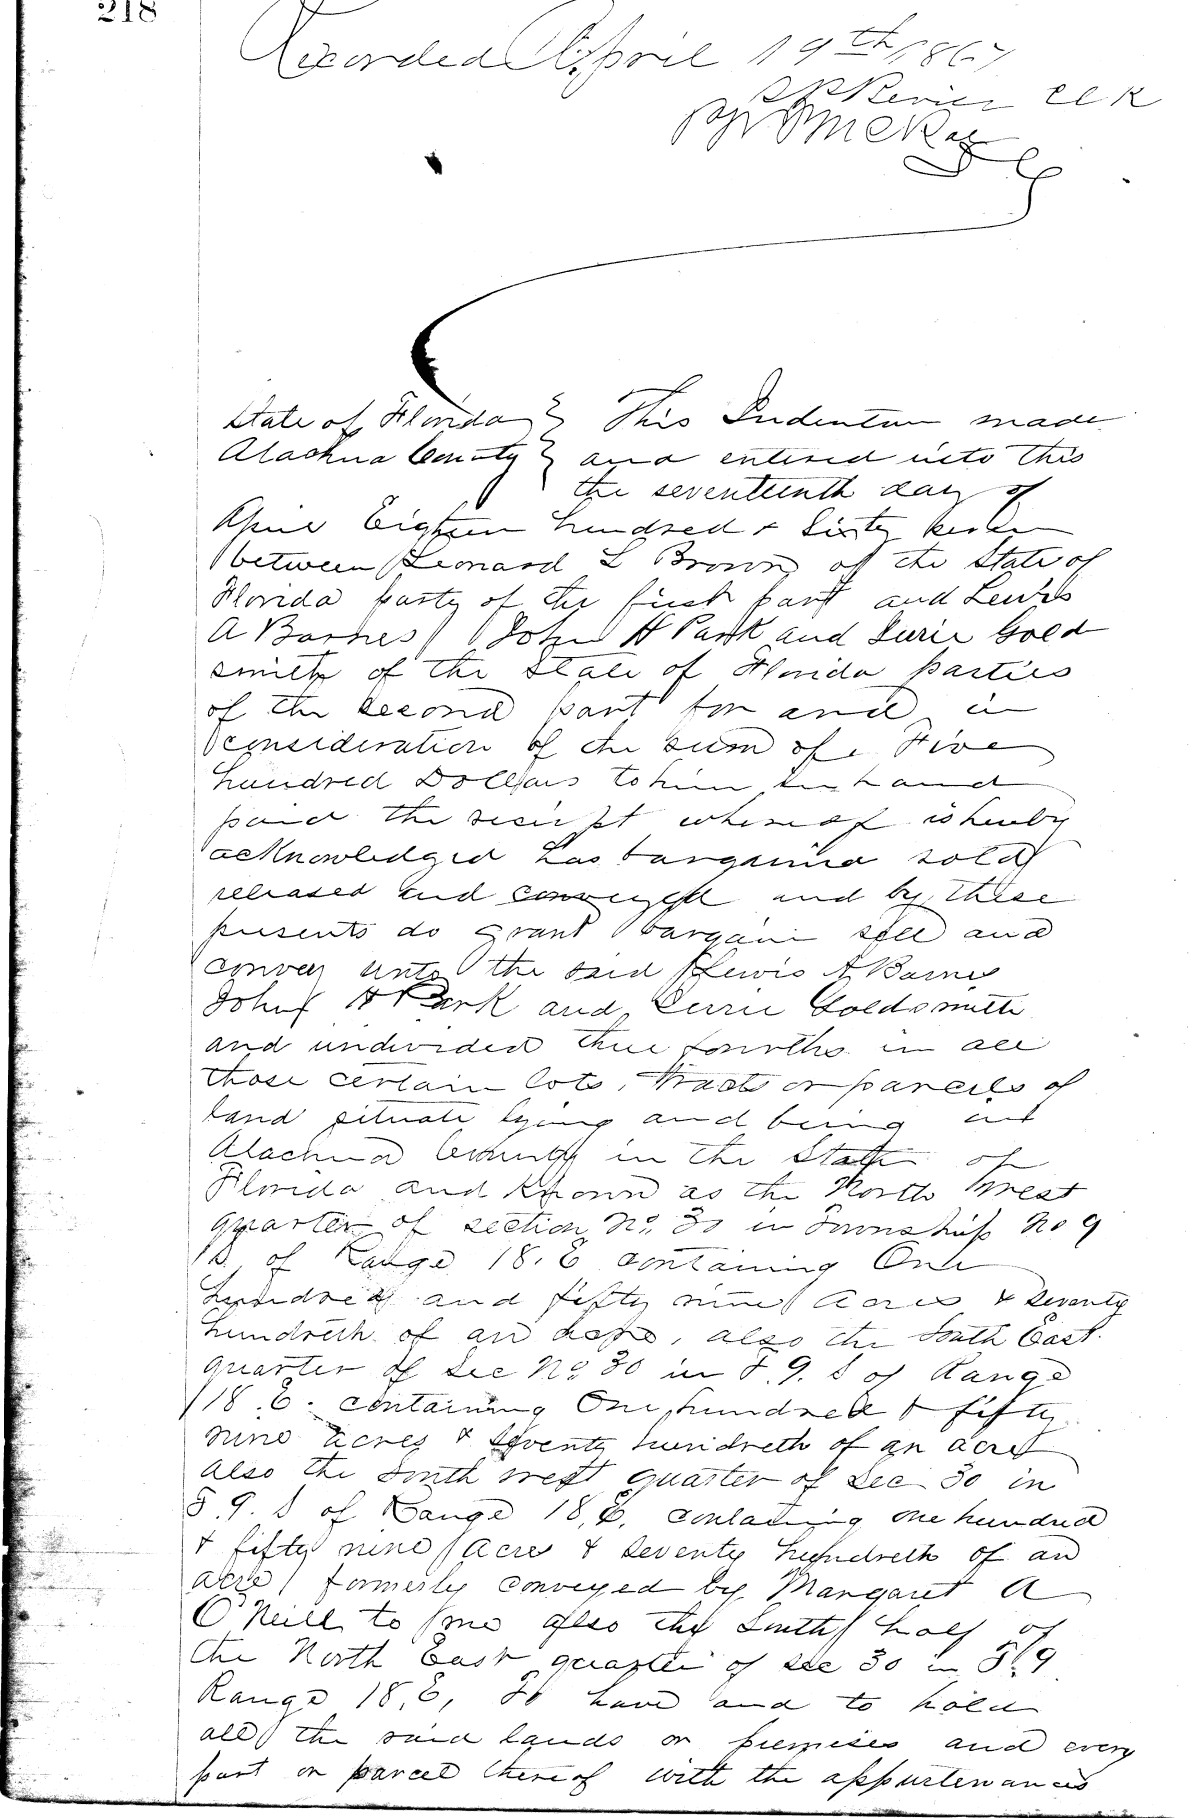 218
Recorded April 19th 1867
Clk
By McKay
State of Florida } This Indenture made
Alachua County } and entered into this
the seventeenth day of
April Eighteen hundred & Sixty seven
between Leonard L Brown of the State of
Florida party of the first part and Lewis
A Barnes John H Park and Goold
smith of the State of Florida parties
of the second part for and in
consideration of the sum of Five
hundred Dollars to him in hand
paid the receipt whereof is hereby
acknowledged has bargained sold
released and conveyed and by these
presents do grant bargain sell and
convey unto the said Lewis A Barnes
John H Park and Goldsmith
and undivided three fourths in all
those certain lots, tracts or parcels of
land situate lying and being in
Alachua County in the State of
Florida and known as the North West
quarter of section No. 30 in Township No 9
S. of Range 18. E containing One
hundred and fifty nine Acres & seventy
hundreth of an acre, also the South East
quarter of Sec No 30 in T. 9. S of Range
18. E. containing One hundred & fifty
nine acres & seventy hundreth of an acre
also the South west quarter of Sec 30 in
T. 9. S of Range 18, E. containing one hundred
& fifty nine acres & seventy hundreth of an
acre formerly conveyed by Margaret A
O'Neill to me also the South half of
the North East quarter of sec 30 in T. 9
Range 18, E, To have and to hold
all the said lands or premises and every
part or parcel thereof with the appurtenances